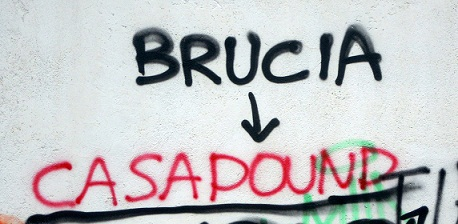 BRUCIA
CASAPOUND